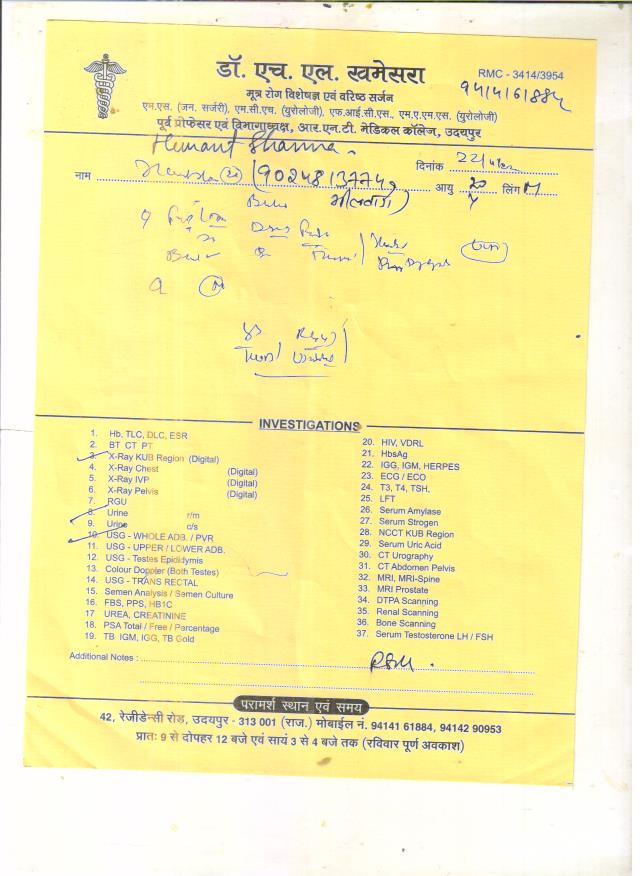 डॉ. एच. एल. खमेसरा
RMC - 3414/3954
9414161884
मूत्र रोग विशेषज्ञ एवं वरिष्ठ सर्जन
एम.एस. (जन. सर्जरी), एम.सी.एच. (युरोलोजी), एफ.आई.सी.एस., एम.ए.एम.एस. (युरोलोजी)
पूर्व प्रोफेसर एवं विभागाध्यक्ष, आर.एन.टी. मेडिकल कॉलेज, उदयपुर
Hemant Sharma
दिनांक 22/4/22
नाम (9024813774, आयु 20 y लिंग M
भीलवाड़ा)
INVESTIGATIONS
1. Hb, TLC, DLC, ESR
2. BT CT PT
3. X-Ray KUB Region (Digital)
4. X-Ray Chest (Digital)
5. X-Ray IVP (Digital)
6. X-Ray Pelvis (Digital)
7. RGU
8. Urine r/m
9. Urine c/s
10. USG - WHOLE ADB. / PVR
11. USG - UPPER / LOWER ADB.
12. USG - Testes Epididymis
13. Colour Doppler (Both Testes)
14. USG - TRANS RECTAL
15. Semen Analysis / Semen Culture
16. FBS, PPS, HB1C
17 UREA, CREATININE
18. PSA Total / Free / Percentage
19. TB IGM, IGG, TB Gold
20. HIV, VDRL
21. HbsAg
22. IGG, IGM, HERPES
23. ECG / ECO
24. T3, T4, TSH.
25. LFT
26. Serum Amylase
27. Serum Strogen
28. NCCT KUB Region
29. Serum Uric Acid
30. CT Urography
31. CT Abdomen Pelvis
32. MRI, MRI-Spine
33. MRI Prostate
34. DTPA Scanning
35. Renal Scanning
36. Bone Scanning
37. Serum Testosterone LH / FSH
Additional Notes :
परामर्श स्थान एवं समय
42, रेजीडेन्सी रोड़, उदयपुर - 313 001 (राज.) मोबाईल नं. 94141 61884, 94142 90953
प्रातः 9 से दोपहर 12 बजे एवं सायं 3 से 4 बजे तक (रविवार पूर्ण अवकाश)